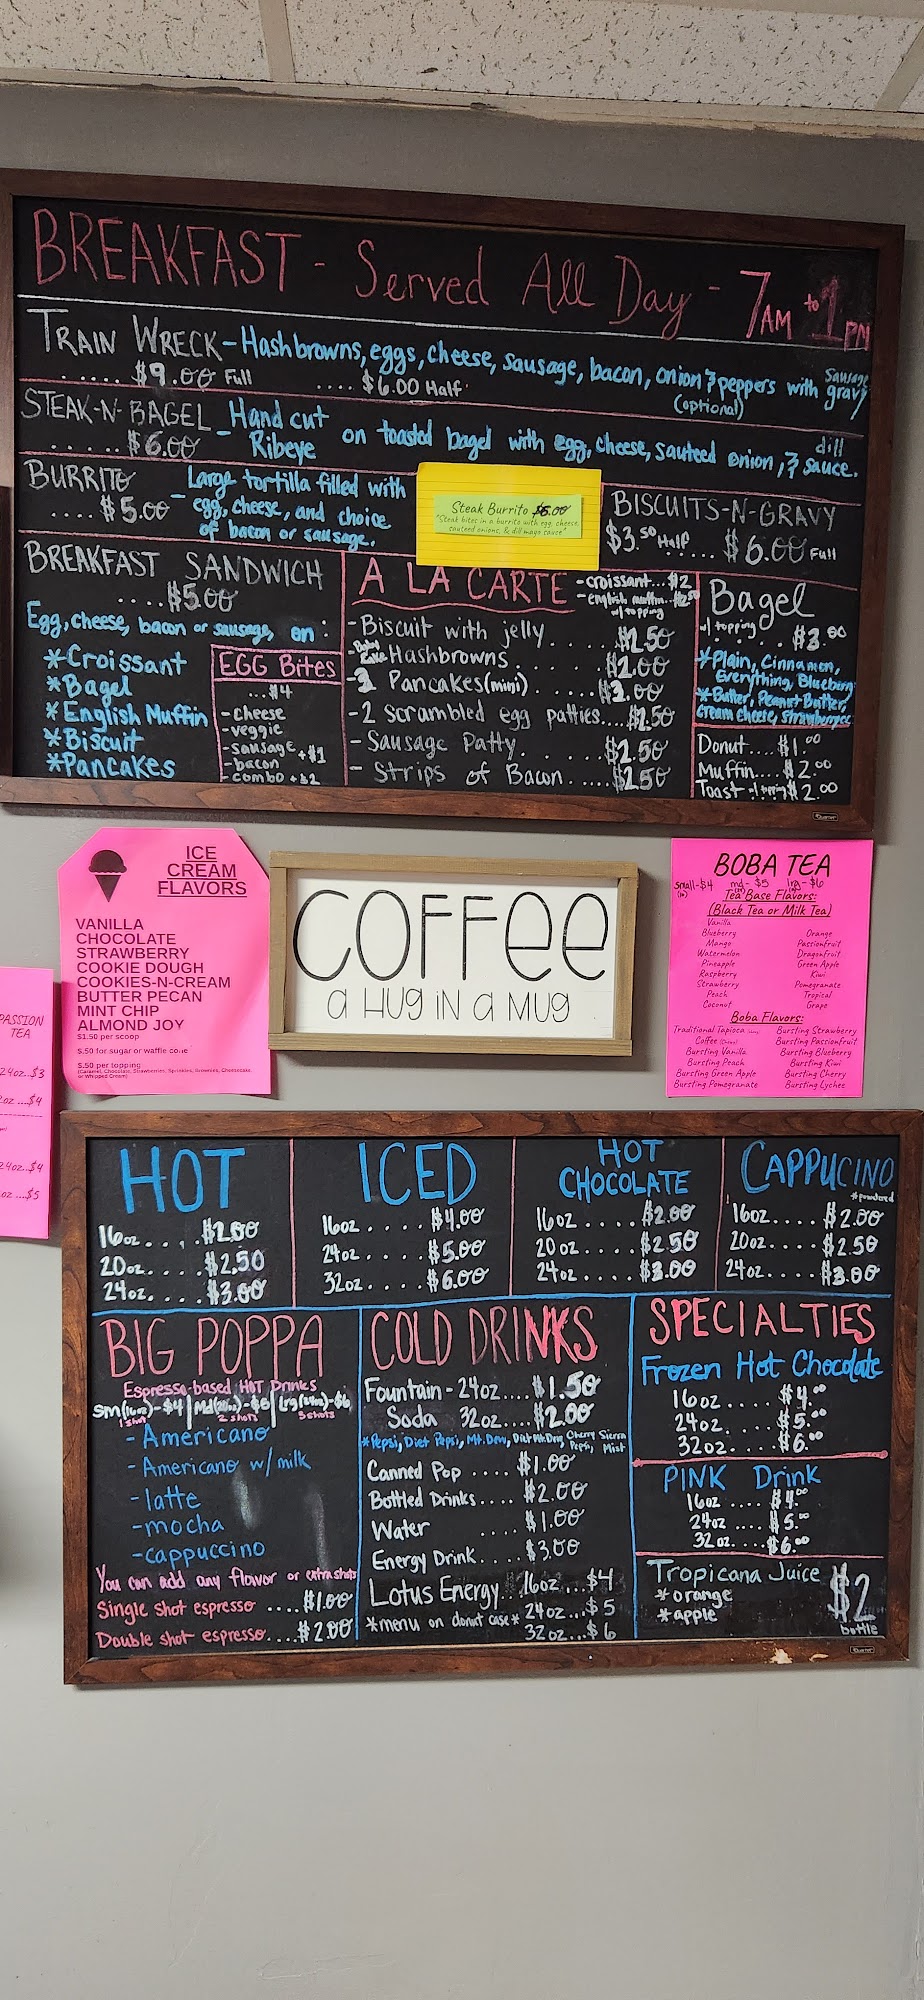 BREAKFAST - Served All Day - 7AM to 1PM
TRAIN WRECK - Hashbrowns, eggs, cheese, sausage, bacon, onion & peppers with sausage gravy
..... $9.00 Full .... $6.00 Half (optional)
STEAK-N-BAGEL - Hand cut Ribeye on toasted bagel with egg, cheese, sauteed onion, & dill sauce.
.... $6.00
BURRITO - Large tortilla filled with
.... $5.00 egg, cheese, and choice
of bacon or sausage.
Steak Burrito
"Steak bites in a burrito with egg, cheese,
sauteed onions, & dill mayo sauce"
BISCUITS-N-GRAVY
$3.50 Half .... $6.00 Full
BREAKFAST SANDWICH
....$5.00
Egg, cheese, bacon or sausage, on:
*Croissant
*Bagel
*English Muffin
*Biscuit
*Pancakes
EGG Bites
...$4
- cheese
- veggie
- sausage +$1
- bacon
- combo +$2
A LA CARTE
- croissant...$2
- english muffin...
w/ topping
- Biscuit with jelly..... $2.50
Hashbrowns..... $2.00
- 3 Pancakes (mini)..... $3.00
- 2 scrambled egg patties... $1.50
- Sausage Patty..... $2.50
- Strips of Bacon..... $2.50
Bagel
w/ topping
..... $3.00
*Plain, Cinnamon,
Everything, Blueberry
*Butter, Peanut Butter,
cream cheese, strawberry cc
Donut.... $1.00
Muffin.... $2.00
Toast w/ topping $2.00
ICE
CREAM
FLAVORS
VANILLA
CHOCOLATE
STRAWBERRY
COOKIE DOUGH
COOKIES-N-CREAM
BUTTER PECAN
MINT CHIP
ALMOND JOY
$1.50 per scoop
$.50 for sugar or waffle cone
$.50 per topping
(Caramel, Chocolate, Strawberries, Sprinkles, Brownies, Cheesecake,
or Whipped Cream)
COFFee
a HUG iN a MUG
BOBA TEA
small-$4 md-$5 lrg-$6
Tea Base Flavors:
(Black Tea or Milk Tea)
Vanilla
Blueberry Orange
Mango Passionfruit
Watermelon Dragonfruit
Pineapple Green Apple
Raspberry Kiwi
Strawberry Pomegranate
Peach Tropical
Coconut Grape
Boba Flavors:
Traditional Tapioca Bursting Strawberry
Coffee Bursting Passionfruit
Bursting Vanilla Bursting Blueberry
Bursting Peach Bursting Kiwi
Bursting Green Apple Bursting Cherry
Bursting Pomegranate Bursting Lychee
PASSION
TEA
24oz..$3
oz ....$4
24oz...$4
oz ....$5
HOT
16oz.... $2.00
20oz.... $2.50
24oz.... $3.00
ICED
16oz.... $4.00
24oz.... $5.00
32oz.... $6.00
HOT
CHOCOLATE
16oz..... $2.00
20oz..... $2.50
24oz.... $3.00
CAPPUCINO
*powdered
16oz.... $2.00
20oz.... $2.50
24oz.... $3.00
BIG POPPA
Espresso-based HOT Drinks
Sm(16oz)-$4 | Md(20oz)-$5 | Lrg(24oz)-$6
1 shot 2 shots 3 shots
- Americano
- Americano w/ milk
- latte
- mocha
- cappuccino
You can add any flavor or extra shots
Single shot espresso .... $1.00
Double shot espresso.... $2.00
COLD DRINKS
Fountain - 24oz.... $1.50
Soda 32oz.... $2.00
*Pepsi, Diet Pepsi, Mt. Dew, Diet Mt. Dew, Cherry Pepsi, Sierra Mist
Canned Pop .... $1.00
Bottled Drinks.... $2.00
Water .... $1.00
Energy Drink.... $3.00
Lotus Energy. 16oz...$4
*menu on donut case* 24oz...$5
32oz...$6
SPECIALTIES
Frozen Hot Chocolate
16oz.... $4.00
24oz.... $5.00
32oz.... $6.00
PINK Drink
16oz .... $4.00
24oz .... $5.00
32oz.... $6.00
Tropicana Juice $2
*orange
*apple bottle